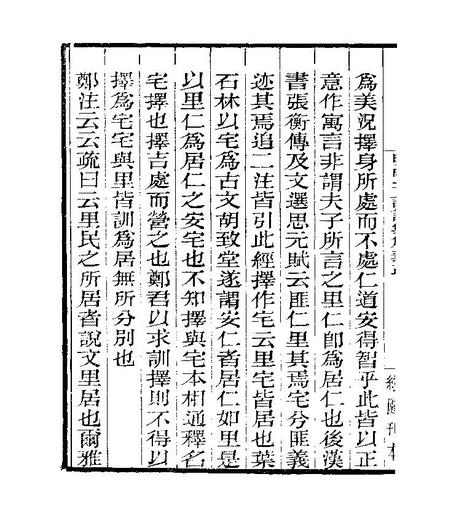 爲美況擇身所處而不處仁道安得智乎此皆以正
意作寓言非謂夫子所言之里仁卽爲居仁也後漢
書張衡傳及文選思元賦云匪仁里其焉宅兮匪義
迹其焉追二注皆引此經擇作宅云里宅皆居也葉
石林以宅爲古文胡致堂遂謂安仁者居仁如里是
以里仁爲居仁之安宅也不知擇與宅本相通釋名
宅擇也擇吉處而營之也鄭君以求訓擇則不得以
擇爲宅宅與里皆訓爲居無所分別也
鄭注云云疏曰云里民之所居者說文里居也爾雅